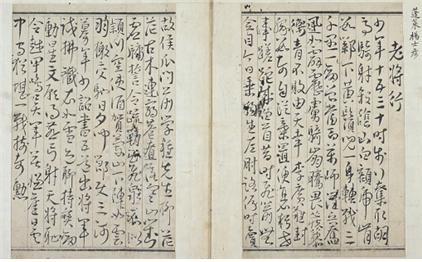 老將行
少年十五二十時步行奪得胡
馬騎射殺山中白額虎肯數
鄴下黃鬚兒一身轉戰三
千里一劍曾當百萬師漢兵奮
迅如霹靂虜騎崩騰畏蒺藜
衛青不敗由天幸李廣無功
緣數奇自從棄置便衰朽世
事蹉跎成白首昔時飛箭無全目
今日垂楊生左肘路旁時賣
故侯瓜門前學種先生柳蒼
茫古木連窮巷寥落寒山對
虛牖誓令疏勒出飛泉不似
潁川空使酒賀蘭山下陣如雲
羽檄交馳日夕聞節使三河
募年少詔書五道出將軍
試拂鐵衣如雪色聊持寶劍
動星文願得燕弓射天將恥
令越甲鳴吾君莫嫌舊日雲
中守猶堪一戰取功勳